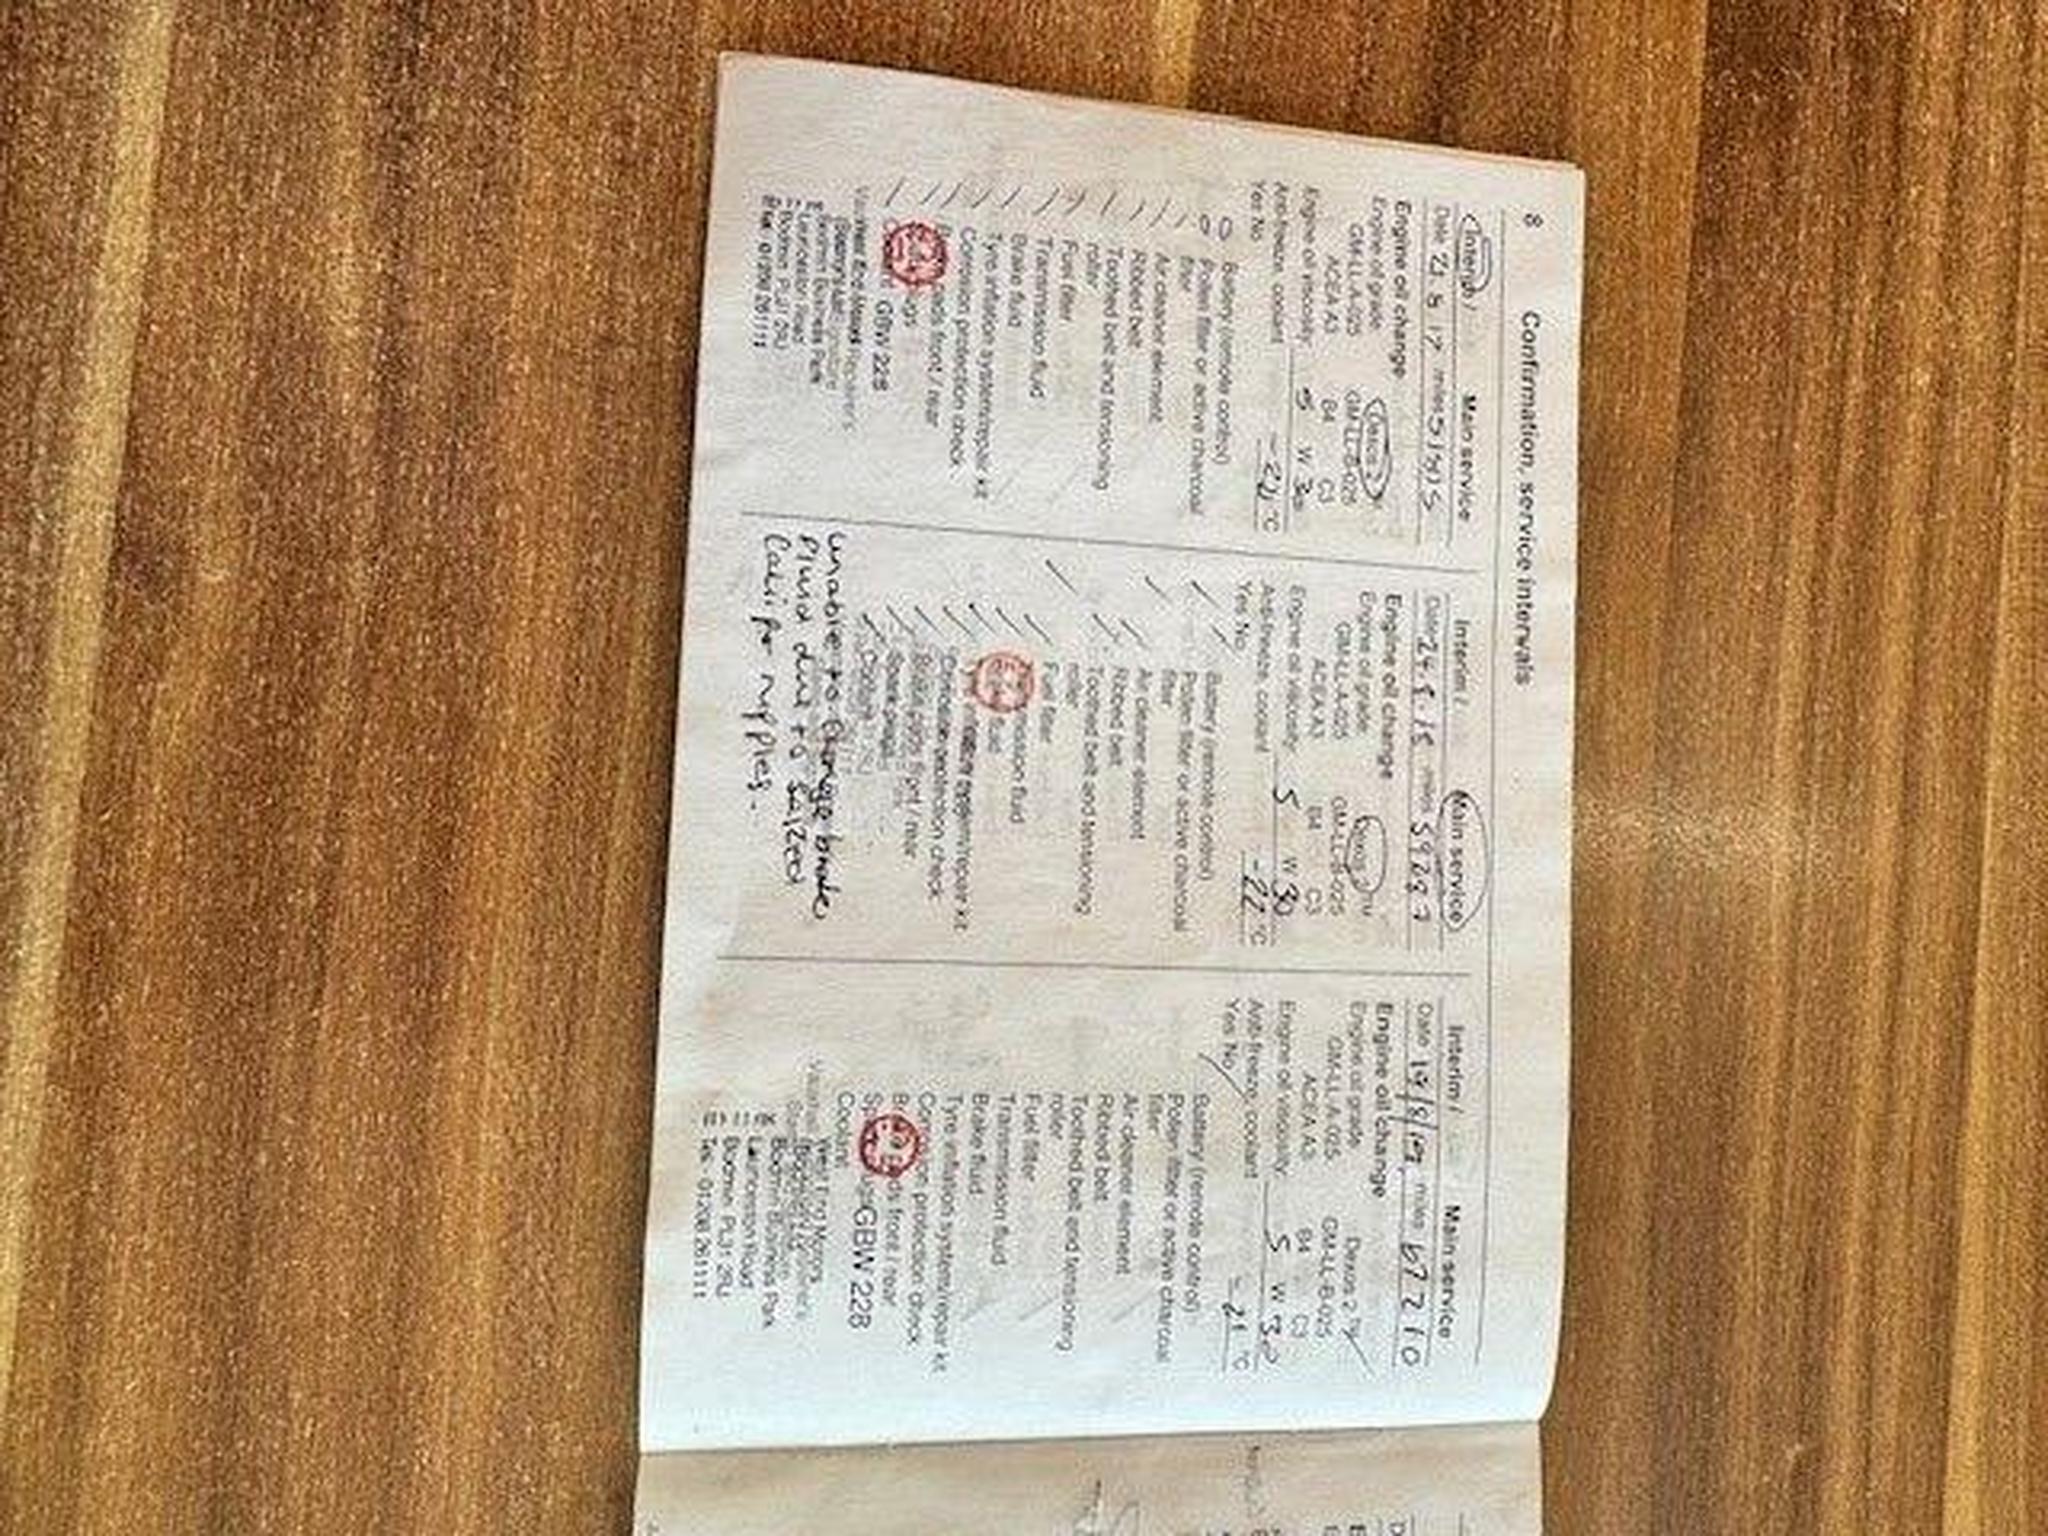 8
Confirmation, service intervals
Interim / Main service
Date 23 8 17 miles 51815
Engine oil change
Engine oil grade Dexos 2
GM-LL-A-025 GM-LL-B-025
ACEA A3 B4 C3
Engine oil viscosity 5 W 30
Anti-freeze, coolant
Yes No -24 °C
Battery (remote control)
Pollen filter or active charcoal
filter
Air cleaner element
Ribbed belt
Toothed belt and tensioning
roller
Fuel filter
Transmission fluid
Brake fluid
Tyre inflation system/repair kit
Corrosion protection check
pads front / rear
GBW 228
Bodmin Business Park
Launceston Road
Bodmin PL31
Tel: 01208 261111
Interim / Main service
Date 24.8.18 miles 59287
Engine oil change
Engine oil grade Dexos 2 TM
GM-LL-A-025 GM-LL-B-025
ACEA A3 B4 C3
Engine oil viscosity 5 W 30
Anti-freeze, coolant
Yes No -22 °C
Battery (remote control)
Pollen filter or active charcoal
filter
Air cleaner element
Ribbed belt
Toothed belt and tensioning
roller
Fuel filter
fluid
Corrosion protection check
Brake pads front / rear
Spark plugs
Coolant
unable to change brake
fluid due to seized
caliper nipples.
Interim / Main service
Date 19/8/19 miles 67210
Engine oil change
Engine oil grade Dexos 2 TM
GM-LL-A-025 GM-LL-B-025
ACEA A3 B4 C3
Engine oil viscosity 5 W 30
Anti-freeze, coolant
Yes No -21 °C
Battery (remote control)
Pollen filter or active charcoal
filter
Air cleaner element
Ribbed belt
Toothed belt and tensioning
roller
Fuel filter
Transmission fluid
Brake fluid
Tyre inflation system/repair kit
protection check
front / rear
GBW 228
Coolant
West End Motors
Bodmin Business Park
Launceston Road
Bodmin PL31 2RJ
Tel: 01208 261111